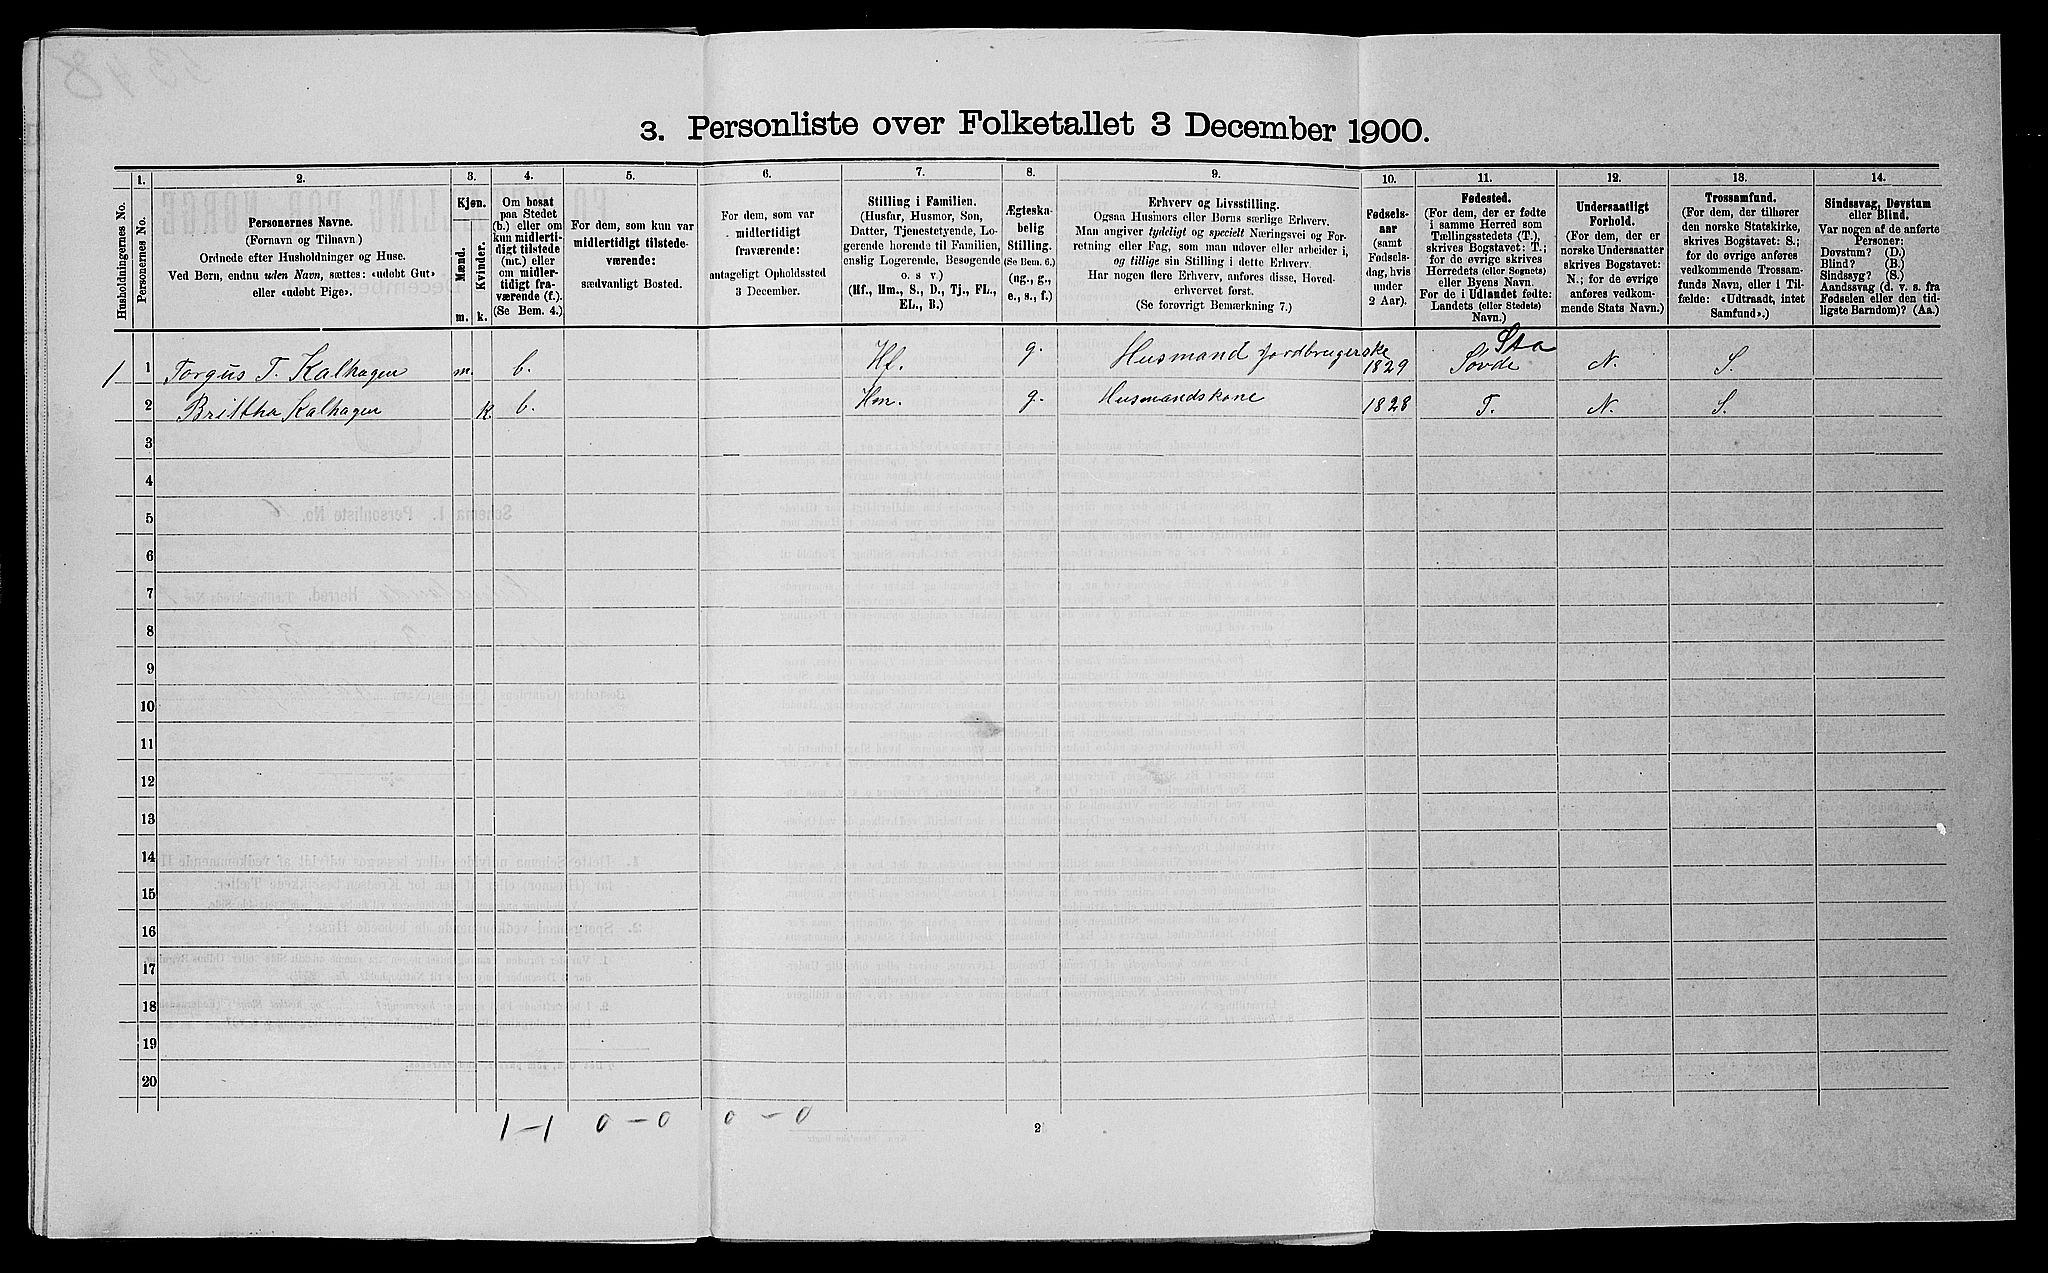 3. Personliste over Folketallet 3 December 1900.
1. 2. 3. 4. 5. 6. 7. 8. 9. 10. 11. 12. 13. 14.
Husholdningernes No.
Personernes No.
Personernes Navne.
(Fornavn og Tilnavn)
Ordnede efter Husholdninger og Huse.
Ved Børn, endnu uden Navn, sættes: «udøbt Gut»
eller «udøbt Pige».
Kjøn.
Mænd.
Kvinder.
m. k.
Om bosat
paa Stedet
(b.) eller om
kun midlerti-
digt tilstede
(mt.) eller
om midler-
tidigt fra-
værende (f.).
(Se Bem. 4.)
For dem, som kun var
midlertidigt tilstede-
værende:
sædvanligt Bosted.
For dem, som var
midlertidigt
fraværende:
antageligt Opholdssted
3 December.
Stilling i Familien.
(Husfar, Husmor, Søn,
Datter, Tjenestetyende, Lo-
gerende hørende til Familien,
enslig Logerende, Besøgende
o. s. v.)
(Hf., Hm., S., D., Tj., FL.,
EL., B.)
Ægteska-
belig
Stilling.
(Se Bem. 6.)
(ug., g.,
e., s., f.)
Erhverv og Livsstilling.
Ogsaa Husmors eller Børns særlige Erhverv.
Man angiver tydeligt og specielt Næringsvei og For-
retning eller Fag, som man udøver eller arbeider i,
og tillige sin Stilling i dette Erhverv.
Har nogen flere Erhverv, anføres disse, Hoved-
erhvervet først.
(Se forøvrigt Bemærkning 7.)
Fødsels-
aar
(samt
Fødsels-
dag, hvis
under
2 Aar).
Fødested.
(For dem, der er fødte
i samme Herred som
Tællingsstedets (T.),
skrives Bogstavet: T.;
for de øvrige skrives
Herredets (eller Sognets)
eller Byens Navn.
For de i Udlandet fødte:
Landets (eller Stedets)
Navn.)
Undersaatligt
Forhold.
(For dem, der er
norske Undersaatter
skrives Bogstavet:
N.; for de øvrige
anføres vedkom-
mende Stats Navn.)
Trossamfund.
(For dem, der tilhører
den norske Statskirke,
skrives Bogstavet: S.;
for de øvrige anføres
vedkommende Trossam-
funds Navn, eller i Til-
fælde: «Udtraadt, intet
Samfund».)
Sindssvag, Døvstum
eller Blind.
Var nogen af de anførte
Personer:
Døvstum? (D.)
Blind? (B.)
Sindssyg? (S.)
Aandssvag (d. v. s. fra
Fødselen eller den tid-
ligste Barndom)? (Aa.)
1 1 Torgus T. Kalhagen m. b. Hf. g. Husmand jordbrugerske 1829 Søvde N. S.
2 Brittha Kalhagen k. b. Hm. g. Husmandskone 1828 T. N. S.
3
4
5
6
7
8
9
10
11
12
13
14
15
16
17
18
19
20
1-1 0-0 0-0
2